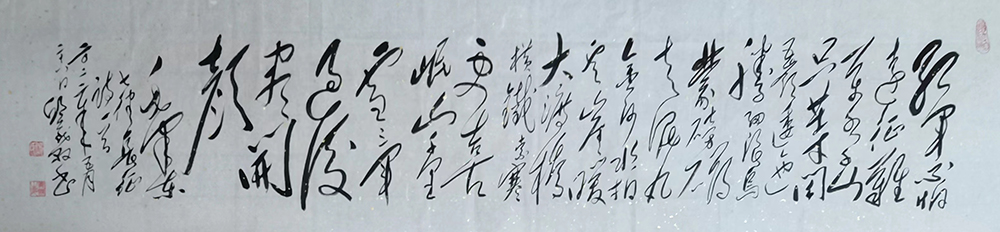 红军不怕
远征難
万水千山
只等闲
五岭逶迤
腾细浪乌
蒙磅礴
走泥丸
金沙水拍
云崖暖
大渡橋
横鐵索寒
更喜
岷山千里
雪三军
过後
尽開
颜
毛泽东
七律长征
诗一首